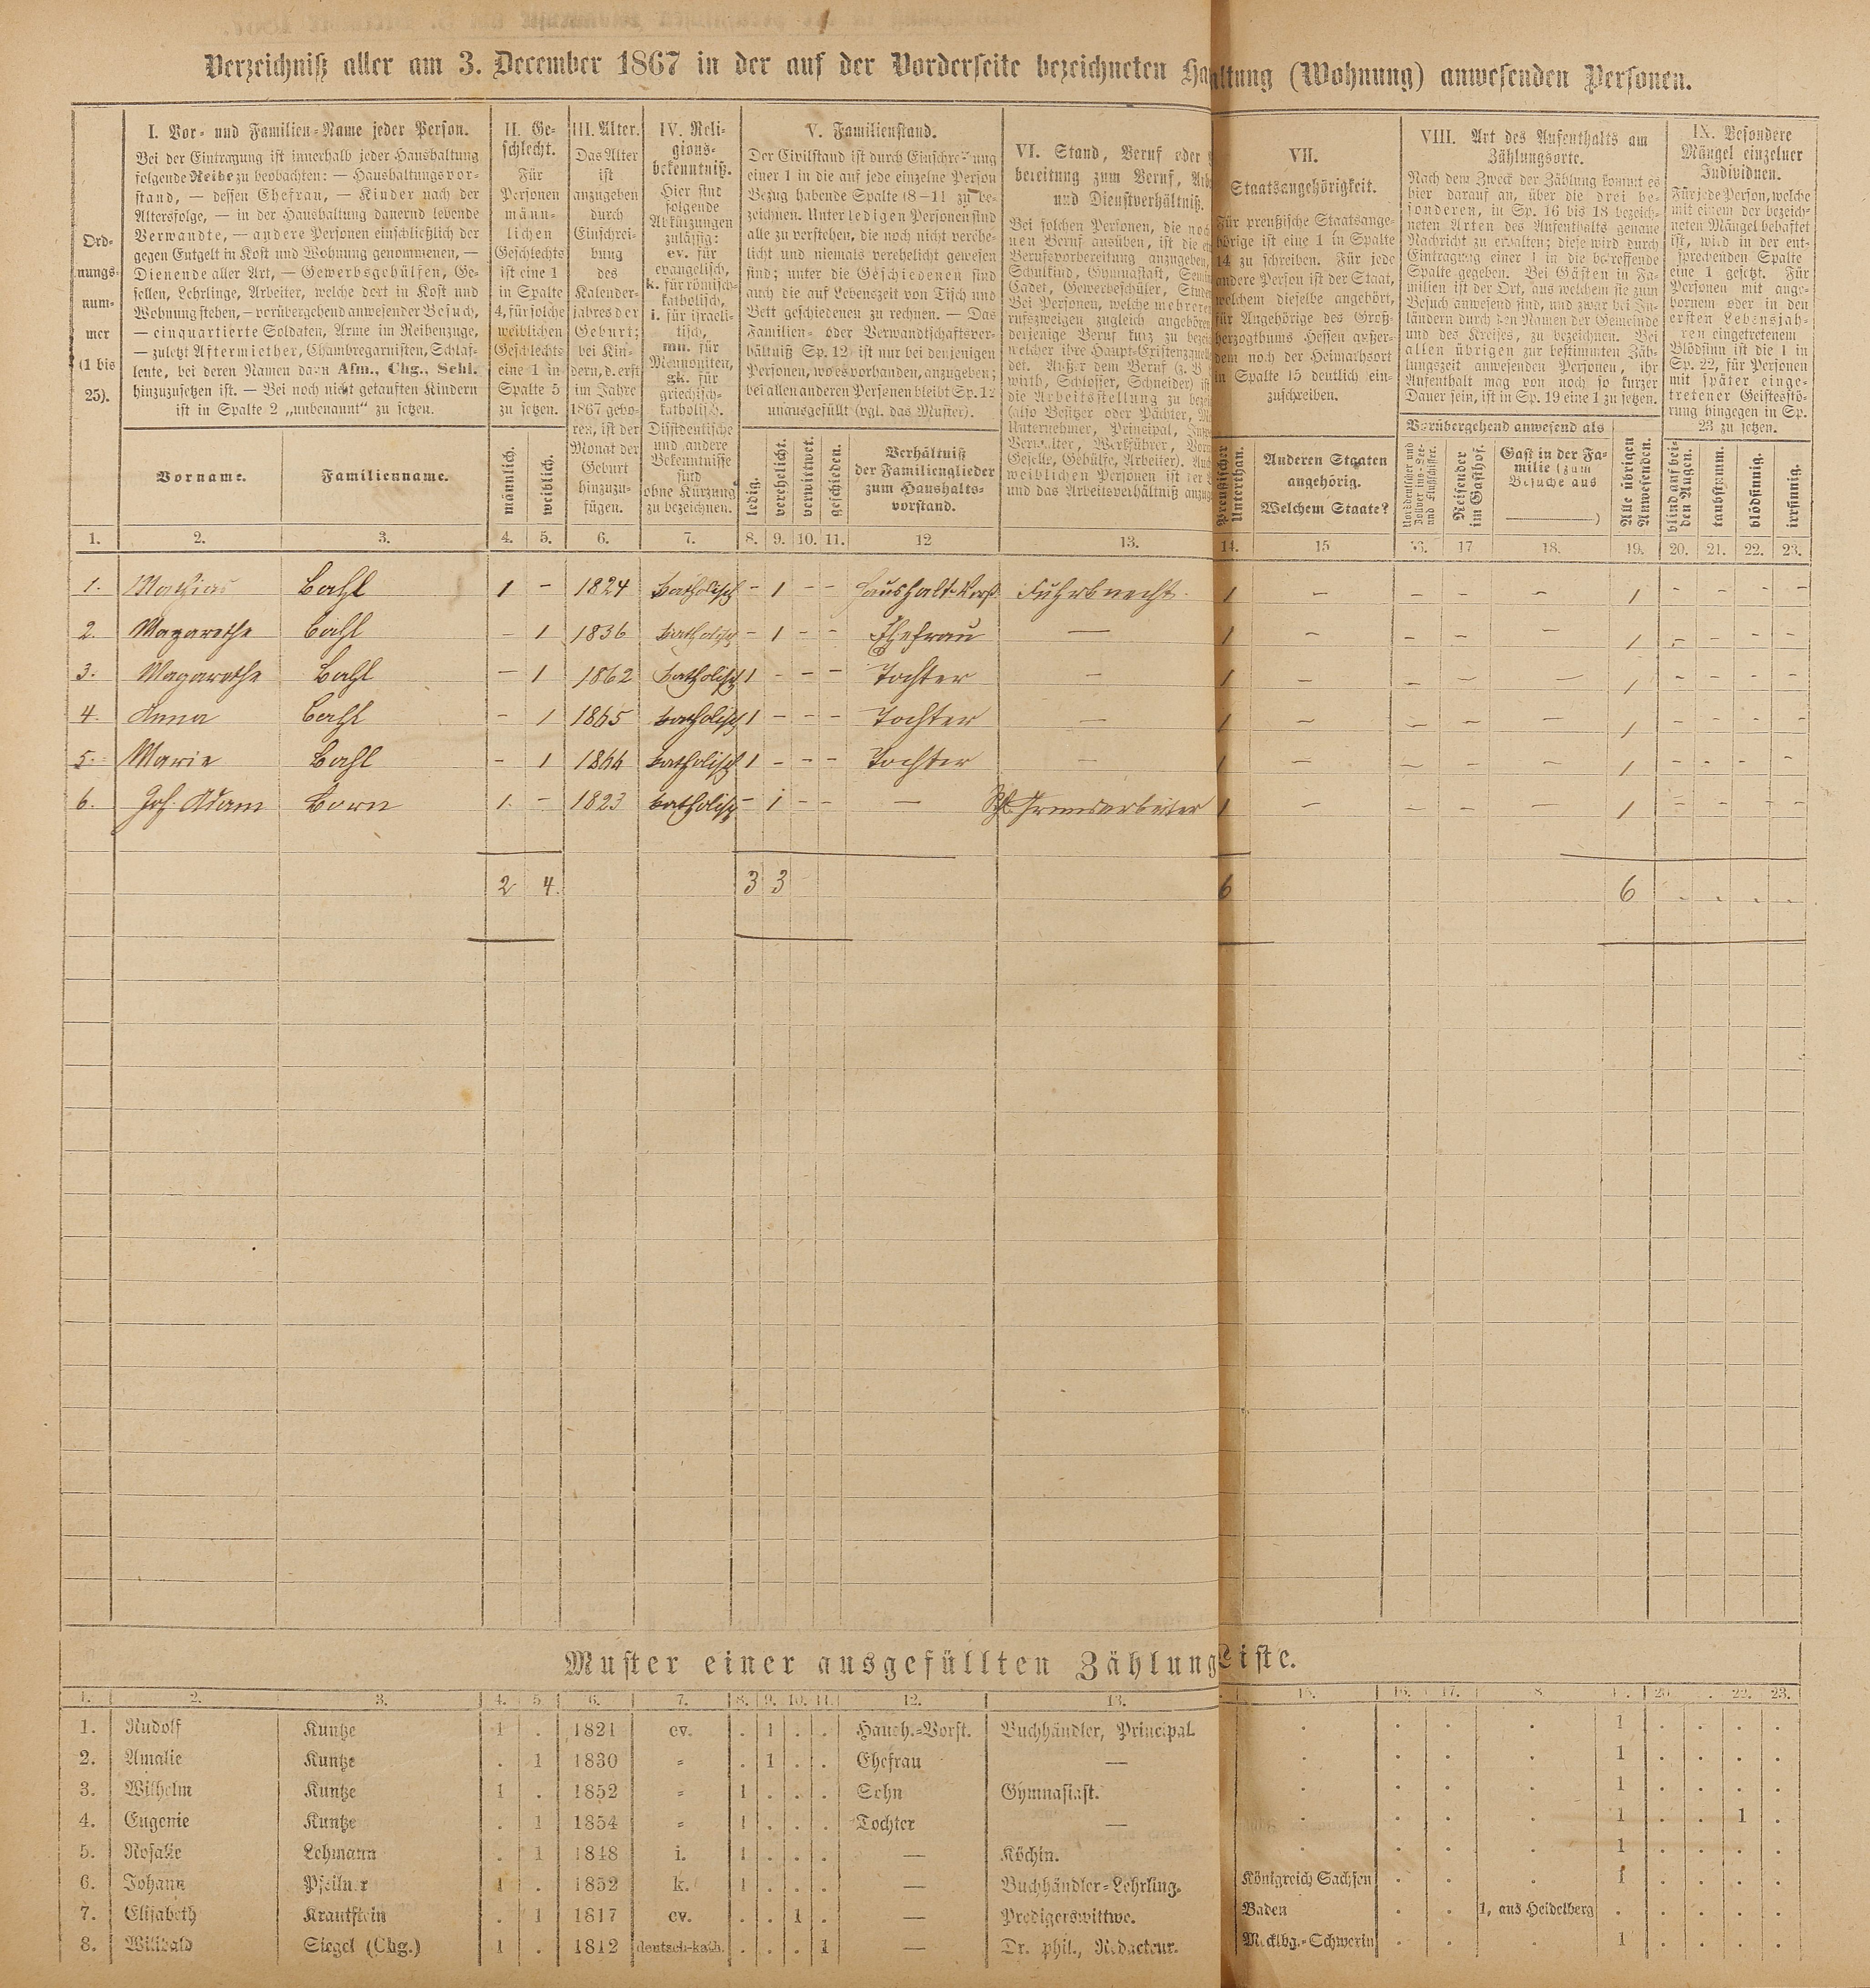 Verzeichniß aller am 3. December 1867 in der auf der Vorderseite bezeichneten Haltung (Wohnung) anwesenden Personen.
Ord-
nungs-
num-
mer
(1 bis
25).
I. Vor- und Familien-Name jeder Person.
Bei der Eintragung ist innerhalb jeder Haushaltung
folgende Reihe zu beobachten: — Haushaltungsvor-
stand, — dessen Ehefrau, — Kinder nach der
Altersfolge, — in der Haushaltung dauernd lebende
Verwandte, — andere Personen einschließlich der
gegen Entgelt in Kost und Wohnung genommenen, —
Dienende aller Art, — Gewerbsgehülfen, Ge-
sellen, Lehrlinge, Arbeiter, welche dort in Kost und
Wohnung stehen, — vorübergehend anwesender Besuch,
— einquartierte Soldaten, Arme im Reihenzuge,
— zuletzt Aftermiether, Chambregarnisten, Schlaf-
leute, bei deren Namen dann Afm., Chg., Schl.
hinzuzusetzen ist. — Bei noch nicht getauften Kindern
ist in Spalte 2 „unbenannt“ zu setzen.
Vorname.
Familienname.
II. Ge-
schlecht.
Für
Personen
männ-
lichen
Geschlechts
ist eine 1
in Spalte
4, für solche
weiblichen
Geschlechts
eine 1 in
Spalte 5
zu setzen.
männlich.
weiblich.
III. Alter.
Das Alter
ist
anzugeben
durch
Einschrei-
bung
des
Kalender-
jahres der
Geburt;
bei Kin-
dern, d. erst
im Jahre
1867 gebo-
ren, ist der
Monat der
Geburt
hinzuzu-
fügen.
IV. Reli-
gions-
bekenntniß.
Hier sind
folgende
Abkürzungen
zulässig:
ev. für
evangelisch,
k. für römisch-
katholisch,
i. für israeli-
tisch,
mn. für
Mennoniten,
gk. für
griechisch-
katholisch.
Dissidentische
und andere
Bekenntnisse
sind
ohne Kürzung
zu bezeichnen.
V. Familienstand.
Der Civilstand ist durch Einschreibung
einer 1 in die auf jede einzelne Person
Bezug habende Spalte (8—11) zu be-
zeichnen. Unter ledigen Personen sind
alle zu verstehen, die noch nicht verehe-
licht und niemals verehelicht gewesen
sind; unter die Geschiedenen sind
auch die auf Lebenszeit von Tisch und
Bett geschiedenen zu rechnen. — Das
Familien- oder Verwandtschaftsver-
hältniß Sp. 12 ist nur bei denjenigen
Personen, wo es vorhanden, anzugeben;
bei allen anderen Personen bleibt Sp. 12
unausgefüllt (vgl. das Muster).
ledig.
verehelicht.
verwittwet.
geschieden.
Verhältniß
der Familienglieder
zum Haushalts-
vorstand.
VI. Stand, Beruf oder
bereitung zum Beruf,
und Dienstverhältniß.
Bei solchen Personen, die
nen Beruf ausüben, ist die
Berufsvorbereitung anzugeben,
Schulkind, Gymnasiast,
Cadet, Gewerbeschüler,
Bei Personen, welche mehreren
rufszweigen zugleich angehören
derjenige Beruf kurz zu
welcher ihre Haupt-Existenzquelle
det. Außer dem Beruf (z. B.
wirth, Schlosser, Schneider) ist
die Arbeitsstellung zu
(also Besitzer oder Pächter,
Unternehmer, Principal,
Verwalter, Werkführer,
Geselle, Gehülfe, Arbeiter).
weiblichen Personen ist der
und das Arbeitsverhältniß
VII.
Staatsangehörigkeit.
Für preußische Staatsange-
hörige ist eine 1 in Spalte
14 zu schreiben. Für jede
andere Person ist der Staat,
welchem dieselbe angehört,
für Angehörige des Groß-
herzogthums Hessen außer-
dem noch der Heimathsort
in Spalte 15 deutlich ein-
zuschreiben.
Preußischer
Unterthan.
Anderen Staaten
angehörig.
Welchem Staate?
VIII. Art des Aufenthalts am
Zählungsorte.
Nach dem Zweck der Zählung kommt es
hier darauf an, über die drei be-
sonderen, in Sp. 16 bis 18 bezeich-
neten Arten des Aufenthalts genaue
Nachricht zu erhalten; diese wird durch
Eintragung einer 1 in die betreffende
Spalte gegeben. Bei Gästen in Fa-
milien ist der Ort, aus welchem sie zum
Besuch anwesend sind, und zwar bei In-
ländern durch den Namen der Gemeinde
und des Kreises, zu bezeichnen. Bei
allen übrigen zur bestimmten Zäh-
lungszeit anwesenden Personen, ihr
Aufenthalt mag von noch so kurzer
Dauer sein, ist in Sp. 19 eine 1 zu setzen.
Vorübergehend anwesend als
Norddeutscher und
Zollvereins-See-
und Flußschiffer.
Reisender
im Gasthof.
Gast in der Fa-
milie (zum
Besuche aus
)
Alle übrigen
Anwesenden.
IX. Besondere
Mängel einzelner
Individuen.
Für jede Person, welche
mit einem der bezeich-
neten Mängel behaftet
ist, wird in der ent-
sprechenden Spalte
eine 1 gesetzt. Für
Personen mit ange-
bornem oder in den
ersten Lebensjah-
ren eingetretenem
Blödsinn ist die 1 in
Sp. 22, für Personen
mit später einge-
tretener Geistesstö-
rung hingegen in Sp.
23 zu setzen.
blind auf bei-
den Augen.
taubstumm.
blödsinnig.
irrsinnig.
1. 2. 3. 4. 5. 6. 7. 8. 9. 10. 11. 12 13. 14. 15 16. 17 18. 19. 20. 21. 22. 23.
1. Mathias Bahl 1 – 1824 katholisch – 1 – – Haushalt-Vorst. Fuhrknecht. 1 – – – – 1 – – – –
2. Magarethe Bahl – 1 1836 katholisch – 1 – – Ehefrau — 1 – – – – 1 – – – –
3. Magarethe Bahl – 1 1862 katholisch 1 – – – Tochter – 1 – – – – 1 – – – –
4. Anna Bahl – 1 1865 katholisch 1 – – – Tochter – 1 – – – – 1 – – – –
5. Marie Bahl – 1 1866 katholisch 1 – – – Tochter – 1 – – – – 1 – – – –
6. Joh. Adam Born 1. – 1823 katholisch – 1 – – – 1 – – – – 1 – – – –
2 4. 3 3 6 6 - - - -
Muster einer ausgefüllten Zählungsliste.
1. 2. 3. 4. 5. 6. 7. 8. 9. 10. 11. 12. 13. 15. 16. 17. 8 20 22. 23.
1. Rudolf Kuntze 1 . 1821 ev. . 1 . . Haush.-Vorst. Buchhändler, Principal. . . . . 1 . . . .
2. Amalie Kuntze . 1 1830 = . 1 . . Ehefrau — . . . . 1 . . . .
3. Wilhelm Kuntze 1 . 1852 = 1 . . . Sohn Gymnasiast. . . . . 1 . . . .
4. Eugenie Kuntze . 1 1854 = 1 . . . Tochter — . . . . 1 . . 1 .
5. Rosalie Lehmann . 1 1848 i. 1 . . . — Köchin. . . . . 1 . . . .
6. Johann Pfeilner 1 . 1852 k. 1 . . . — Buchhändler-Lehrling. Königreich Sachsen . . . 1 . . . .
7. Elisabeth Krautstein . 1 1817 ev. . . 1 . — Predigerswittwe. Baden . . 1, aus Heidelberg . . . . .
8. Willibald Siegel (Chg.) 1 . 1812 deutsch-kath. . . . 1 — Dr. phil., Redacteur. Mecklbg.-Schwerin . . . 1 . . . .